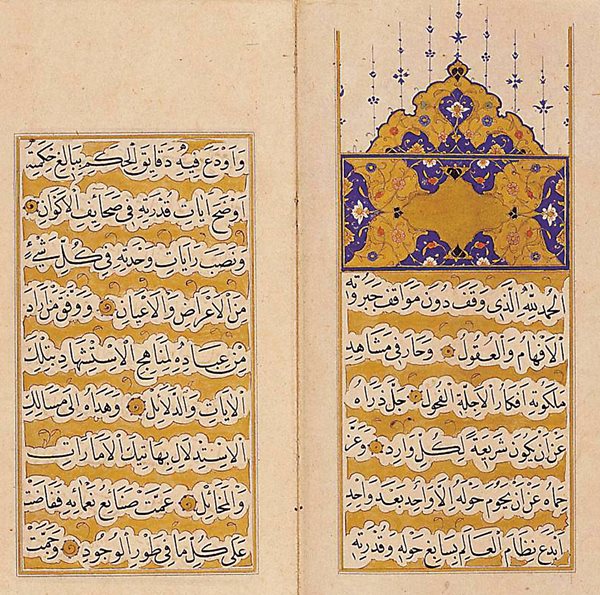 الحمد لله الذي وقف دون مواقف جبروته
الافهام والعقول وحار في مشاهد
ملكوته افكار الاجلة الفحول جل ذراه
عن ان يكون شريعة لكل وارد وعز
حماه عن ان يحوم حوله الا واحد بعد واحد
ابدع نظام العالم بسابغ حوله وقدرته
واودع فيه دقايق الحكم ببالغ حكمته
اوضح آيات قدرته في صحايف الاكوان
ونصب رايات وحدته في كل شيء
من الاعراض والاعيان ووفق من اراد
من عباده لمناهج الاستشهاد بتلك
الايات والدلائل وهداه الى مسالك
الاستدلال بهاتيك الامارات
والمخائل عمت صنائع نعمائه ففاضت
على كل ما في طور الوجود وجمت